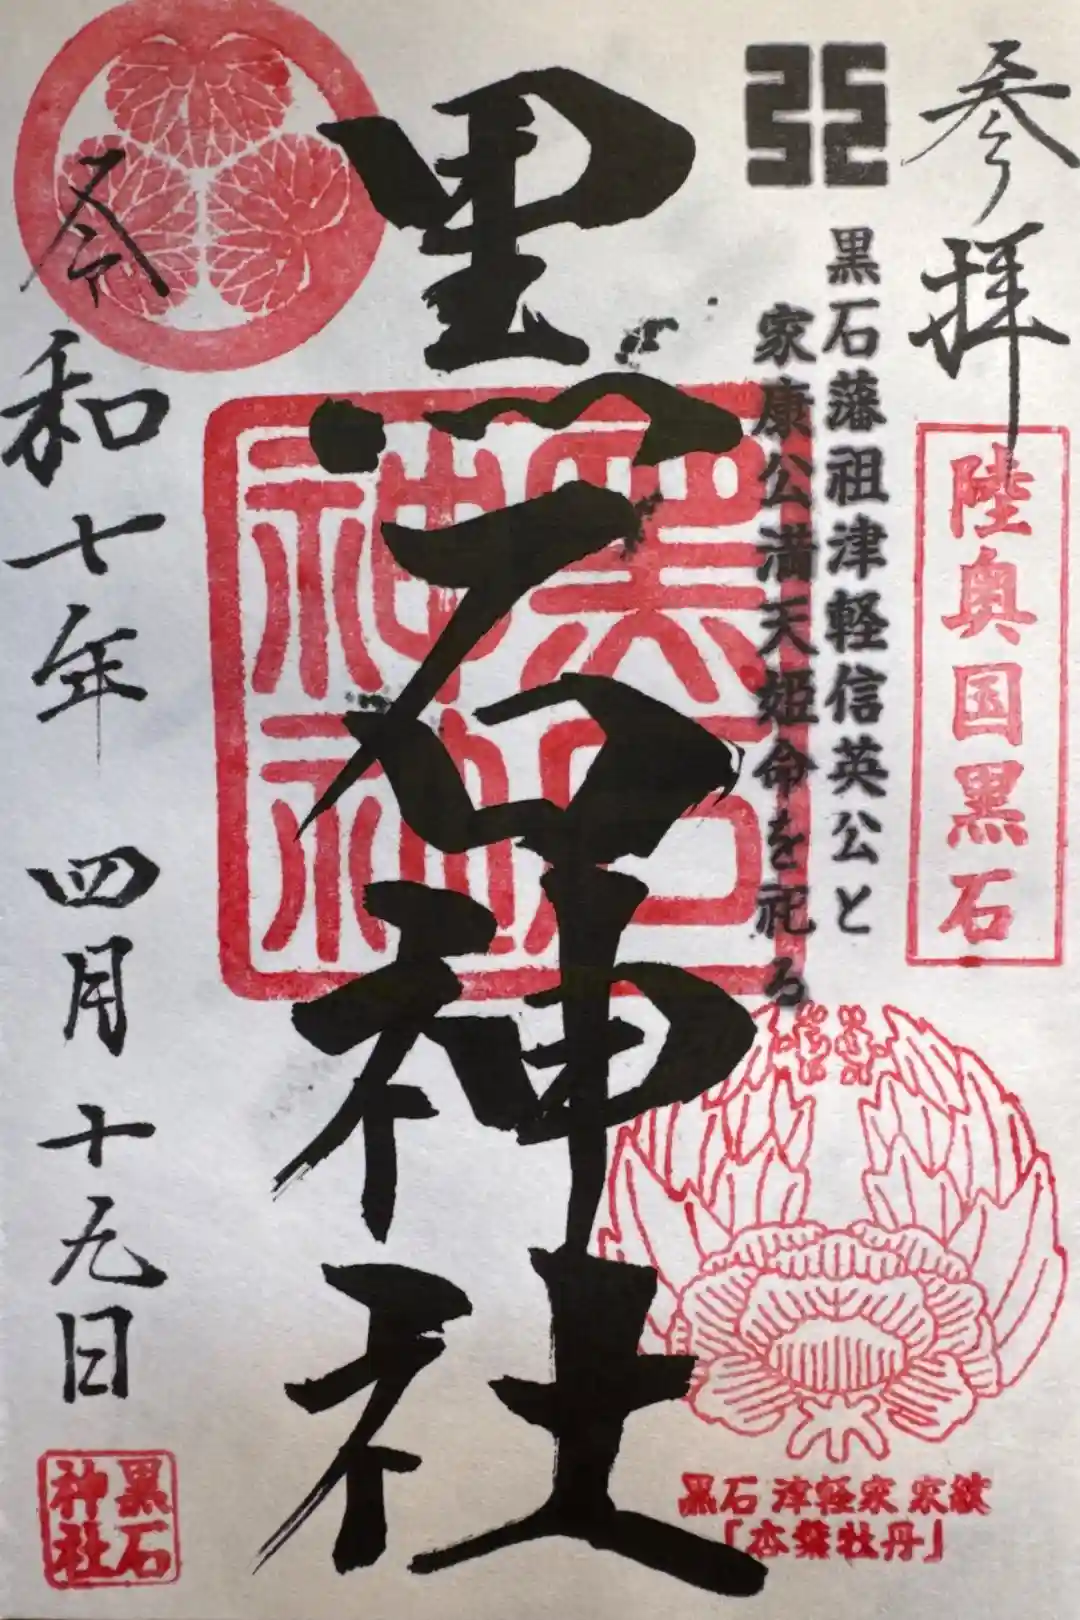 参拝
陸奥国黒石
黒石藩祖津軽信英公と
家康公満天姫命を祀る
黒石神社
黒石神社
令和七年 四月十九日
黒石神社
黒石 津軽家 家紋
「杏葉牡丹」